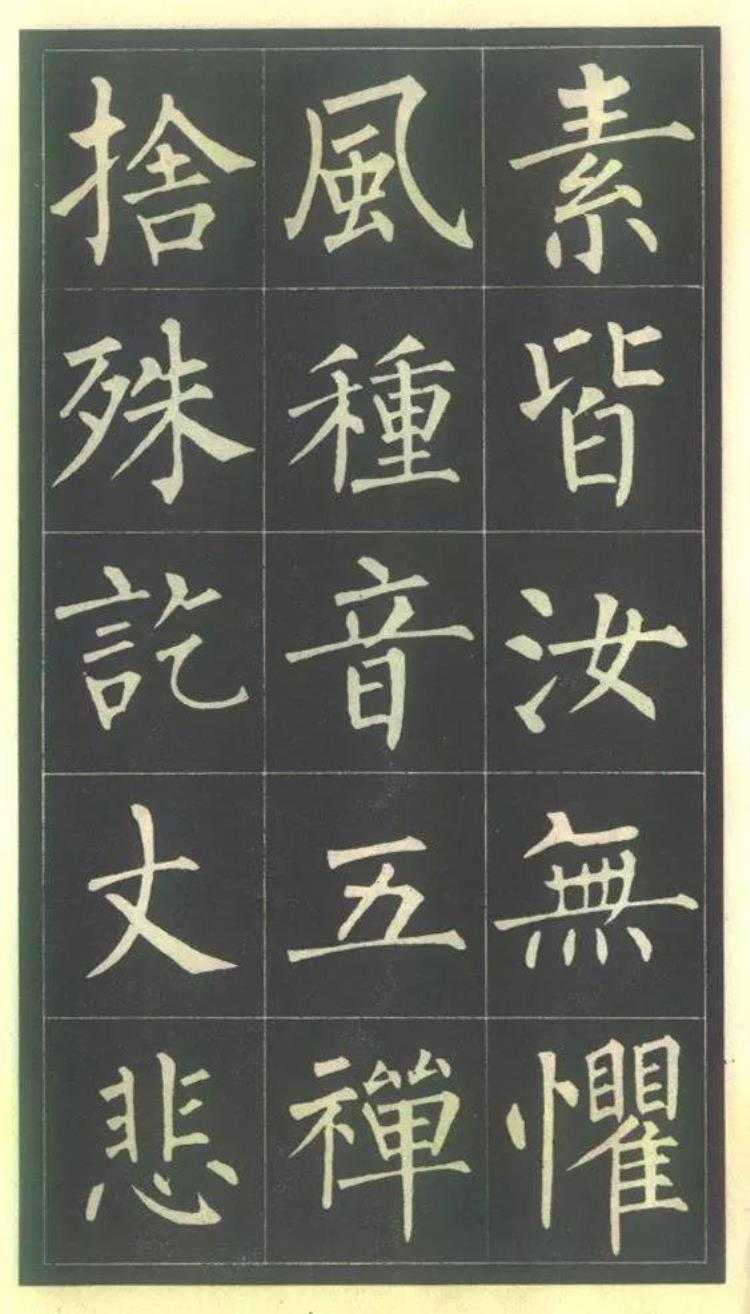 素皆汝無懼
風種音五禪
捨殊訖丈悲